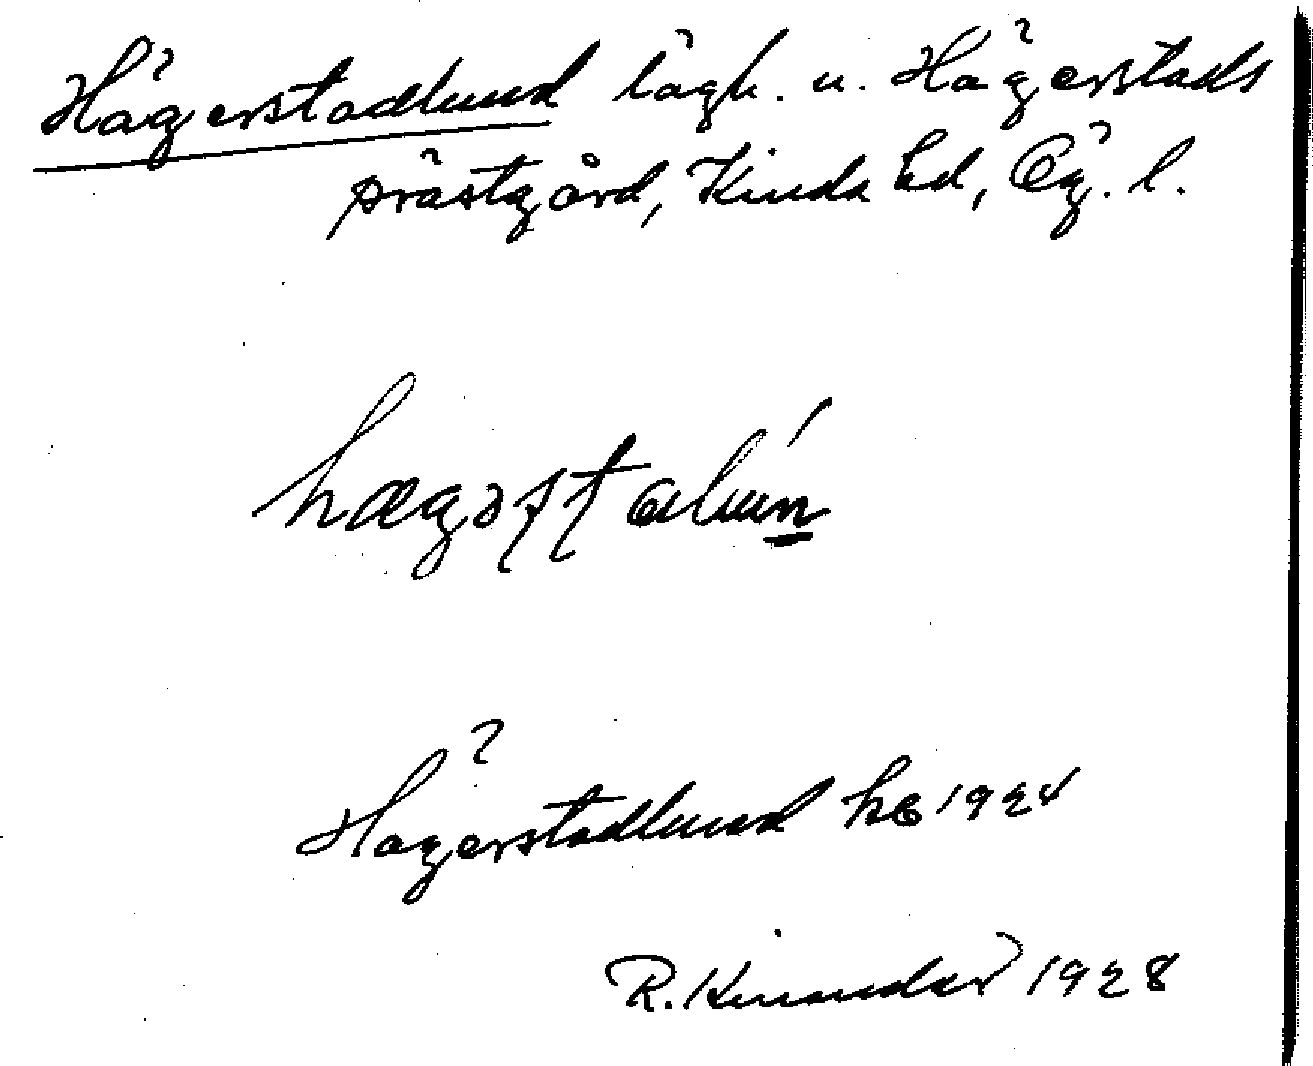 Hägerstadlund lägh. u. Hägerstads
prästgård, Kinda hd, Ög. l.
Hägerstadlund hb 1924
R. Kinander 1928